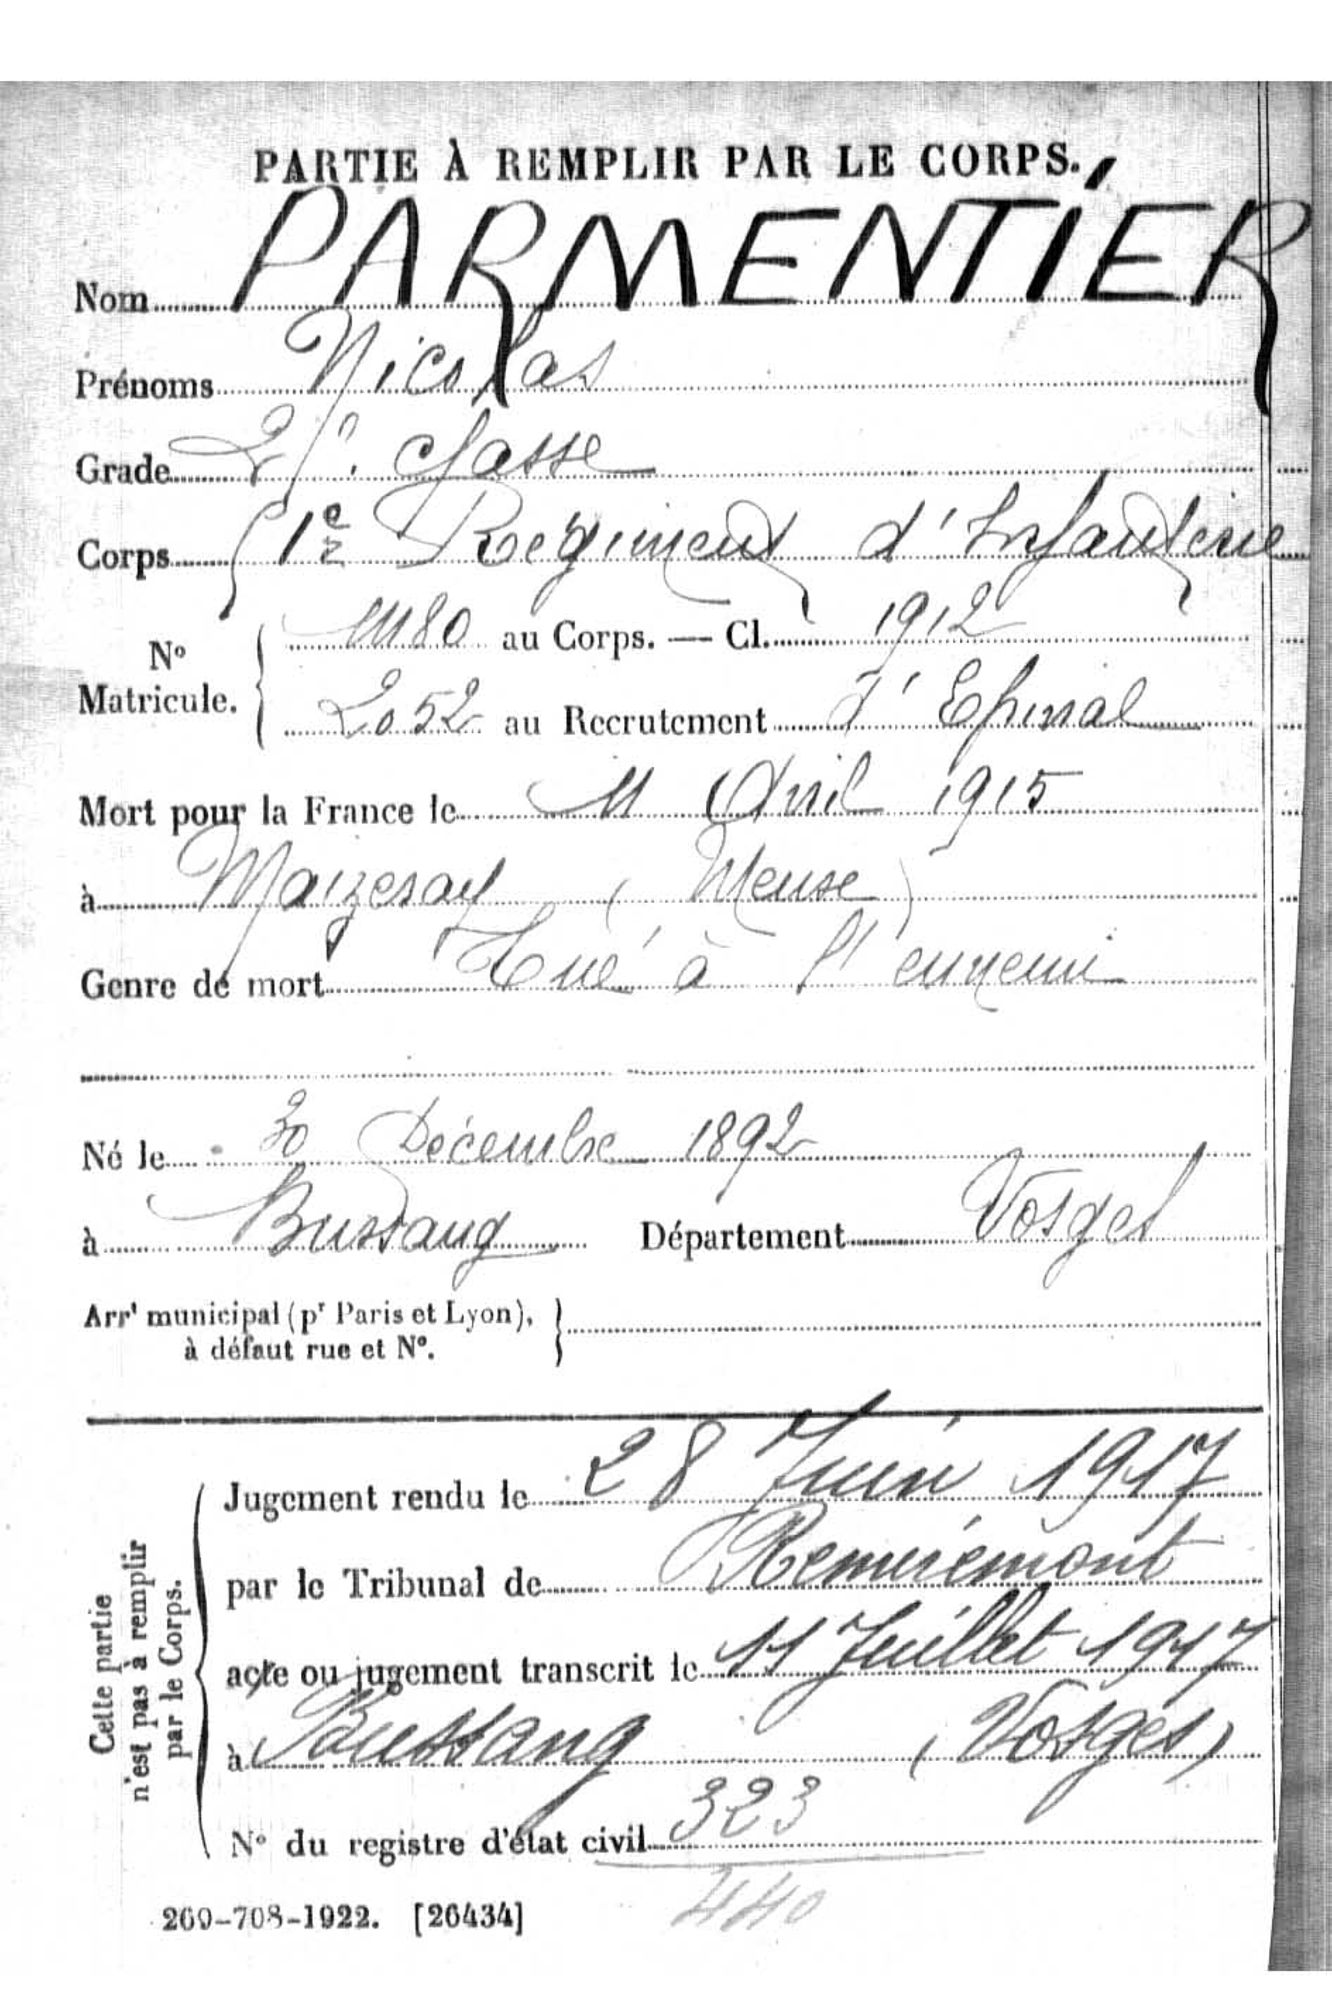 PARTIE À REMPLIR PAR LE CORPS.
Nom PARMENTIER
Prénoms Nicolas
Grade 2e classe
Corps 1er Régiment d'Infanterie
N° Matricule.
au Corps. — Cl. 1912
2052 au Recrutement d'Epinal
Mort pour la France le 11 Avril 1915
à Maizeray (Meuse)
Genre de mort Tué à l'ennemi
Né le 30 Décembre 1892
à Bussang Département Vosges
Arrt municipal (pr Paris et Lyon),
à défaut rue et N°.
Cette partie
n'est pas à remplir
par le Corps.
Jugement rendu le 28 Juin 1917
par le Tribunal de Remiremont
acte ou jugement transcrit le 11 Juillet 1917
à Bussang (Vosges)
N° du registre d'état civil 323
440
269-708-1922. [26434]